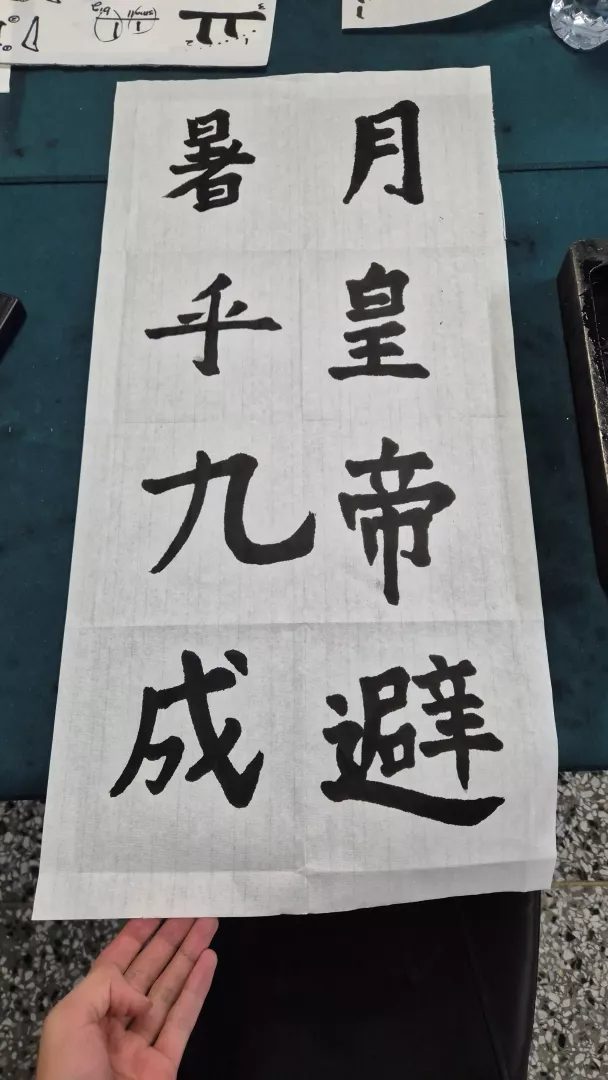 月皇帝避
暑乎九成